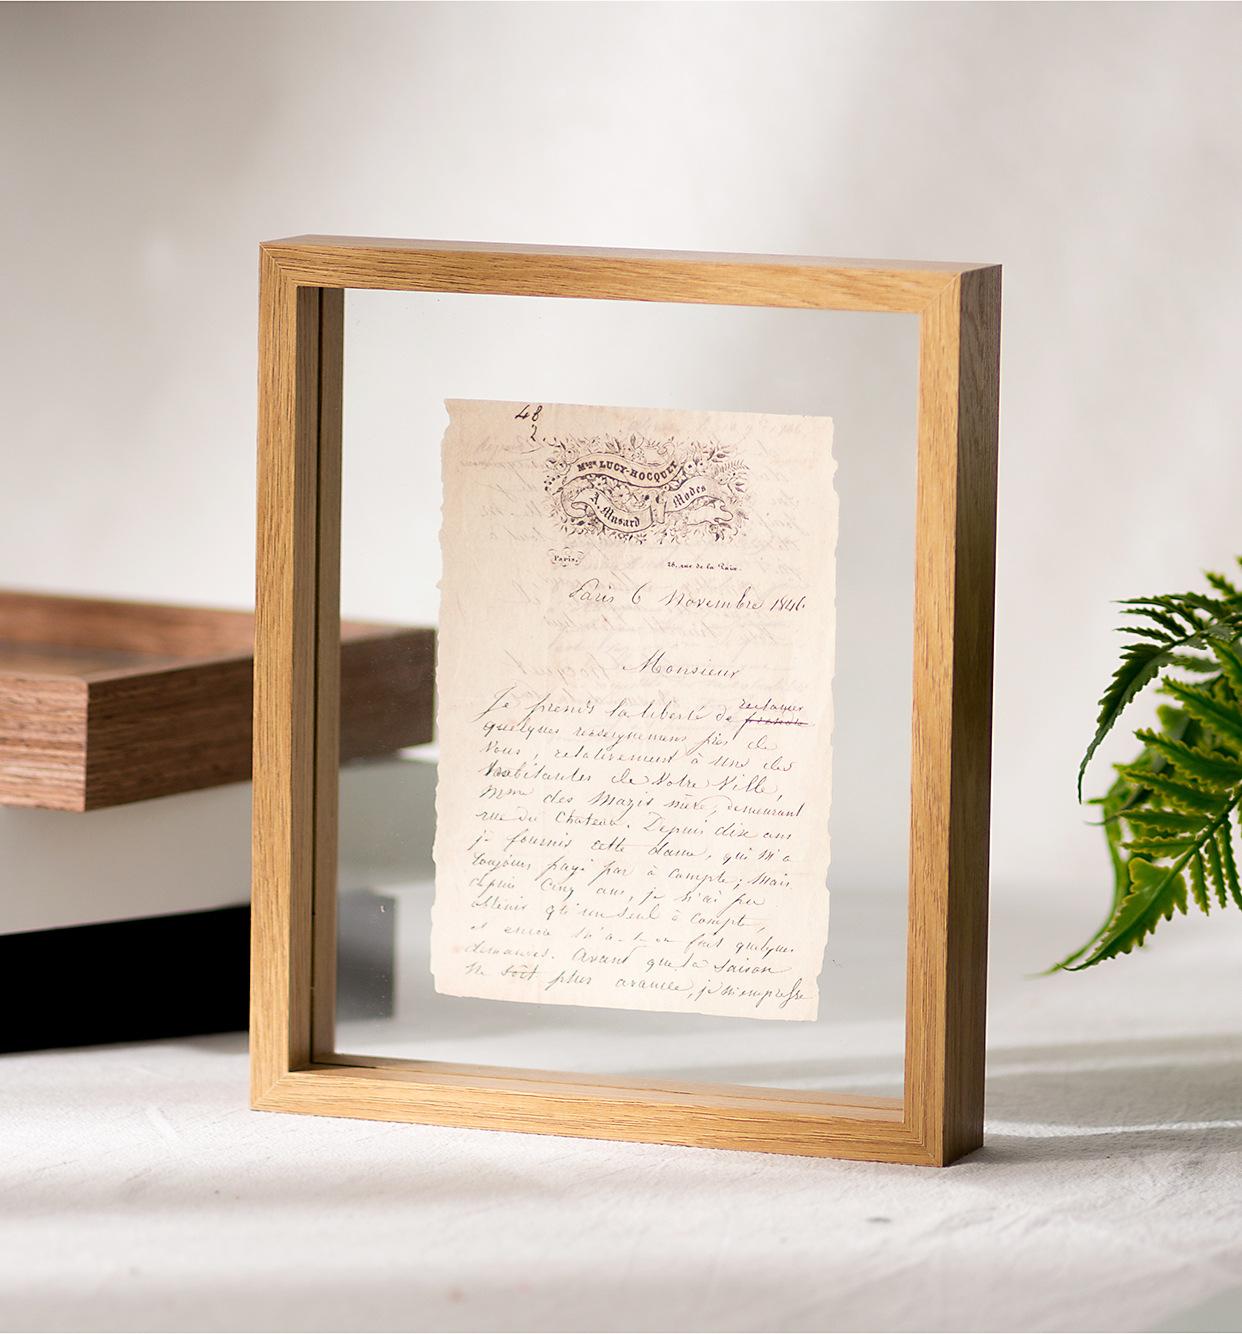 48
2
Mme LUCY-HOCQUET
A. Musard Modes
Paris. 28, rue de la Paix.
Paris 6 Novembre 1846
Monsieur
reclamer
Je prends la liberté de
quelques renseignemens près de
Vous, relativement à une des
habitantes de Votre Ville,
Mme des Mazis mère, demeurant
rue du Chateau. Depuis dix ans
je fournis cette dame, qui m'a
toujours payé par à compte; mais
depuis cinq ans, je n'ai pu
obtenir qu'un seul à compte,
et encore m'a-t-on fait quelques
demandes. Avant que la saison
ne soit plus avancée, je m'empresse